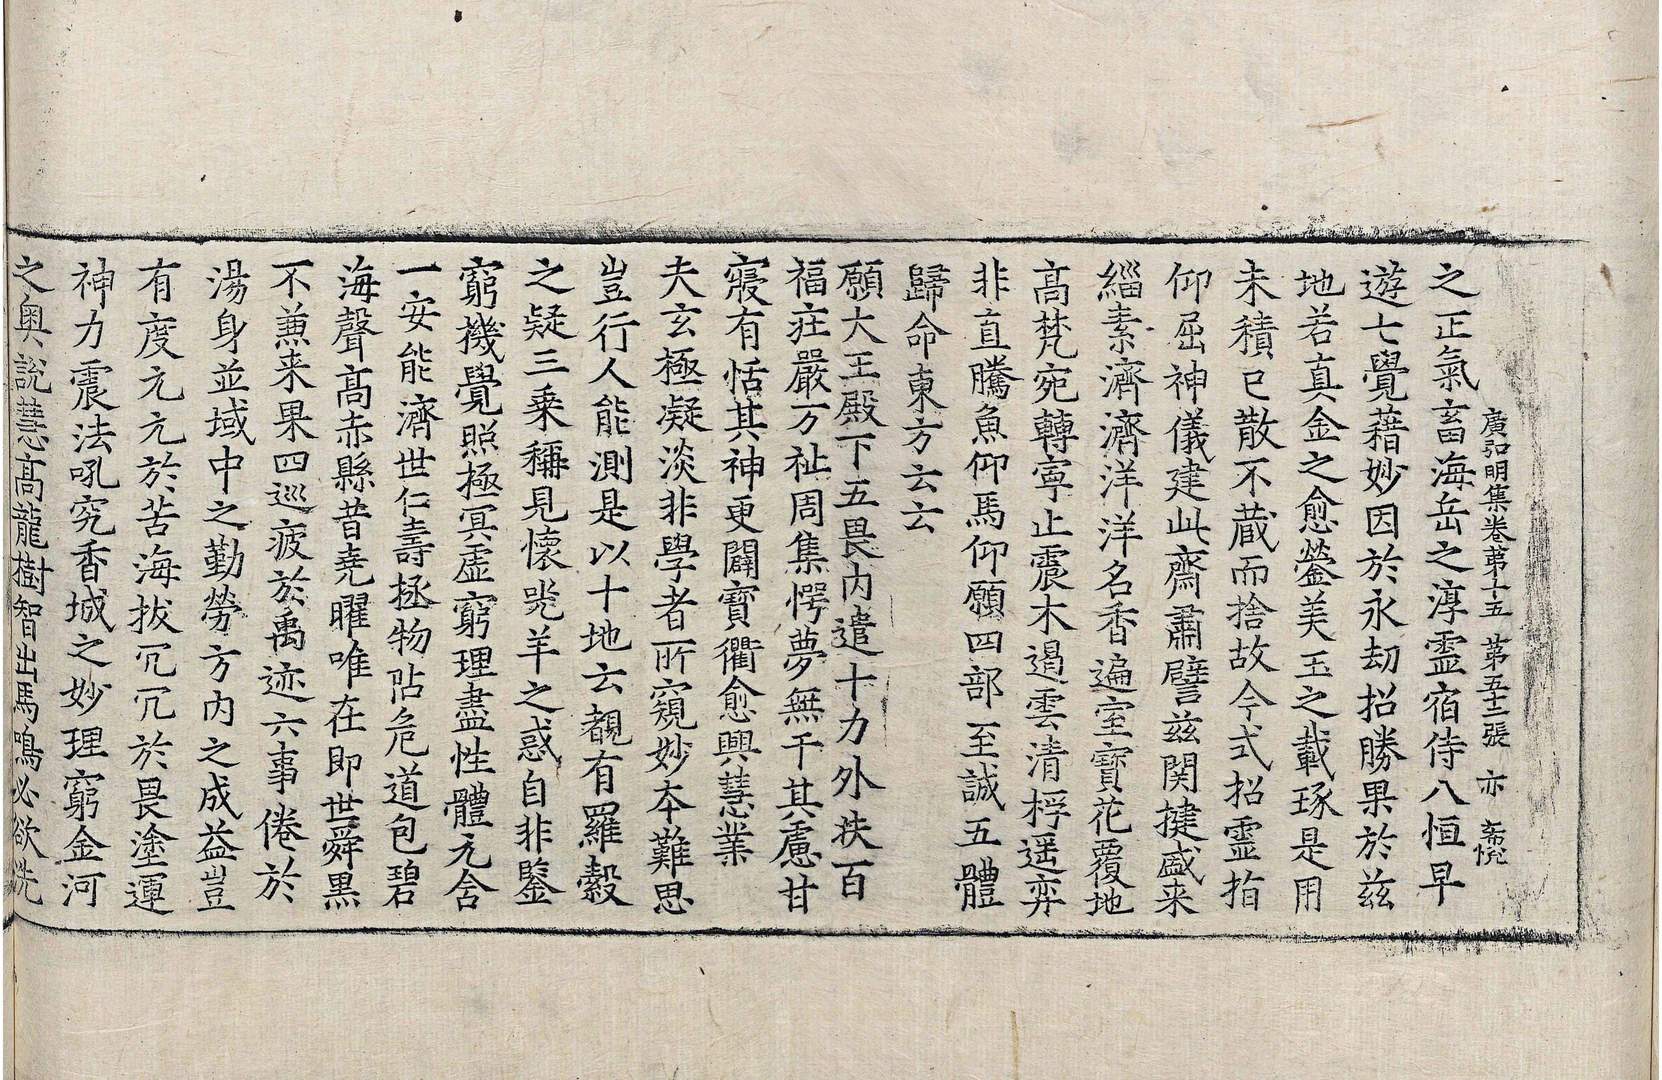 廣弘明集卷第十五　第五十二張　亦
之正氣畜海岳之淳靈宿侍八恒早
遊七覺藉妙因於永劫招勝果於茲
地若真金之愈鎣美玉之載琢是用
未積已散不蔵而捨故今式招霊指
仰屈神儀建此齋肅譬茲関揵盛来
緇素濟濟洋洋名香遍室寶花覆地
高梵宛轉寧止震木遏雲清桴遥弈
非直騰魚仰馬仰願四部至誠五體
歸命東方云云
願大王殿下五畏内遣十力外扶百
福莊嚴万祉周集愕夢無干其慮甘
寢有恬其神更闢寶衢愈興慧業
夫玄極凝淡非學者所窺妙本難思
豈行人能測是以十地云覩有羅縠
之疑三乗稱見懷兠羊之惑自非鑒
窮機覺照極冥虚窮理盡性體元含
一安能濟世仁壽拯物阽危道包碧
海聲高赤縣昔堯曜唯在即世舜黒
不兼来果四巡疲於禹迹六事倦於
湯身並域中之勤勞方内之成益豈
有度元元於苦海拔冗冗於畏塗運
神力震法吼究香城之妙理窮金河
之奥説慧高龍樹智出馬鳴必欲洗